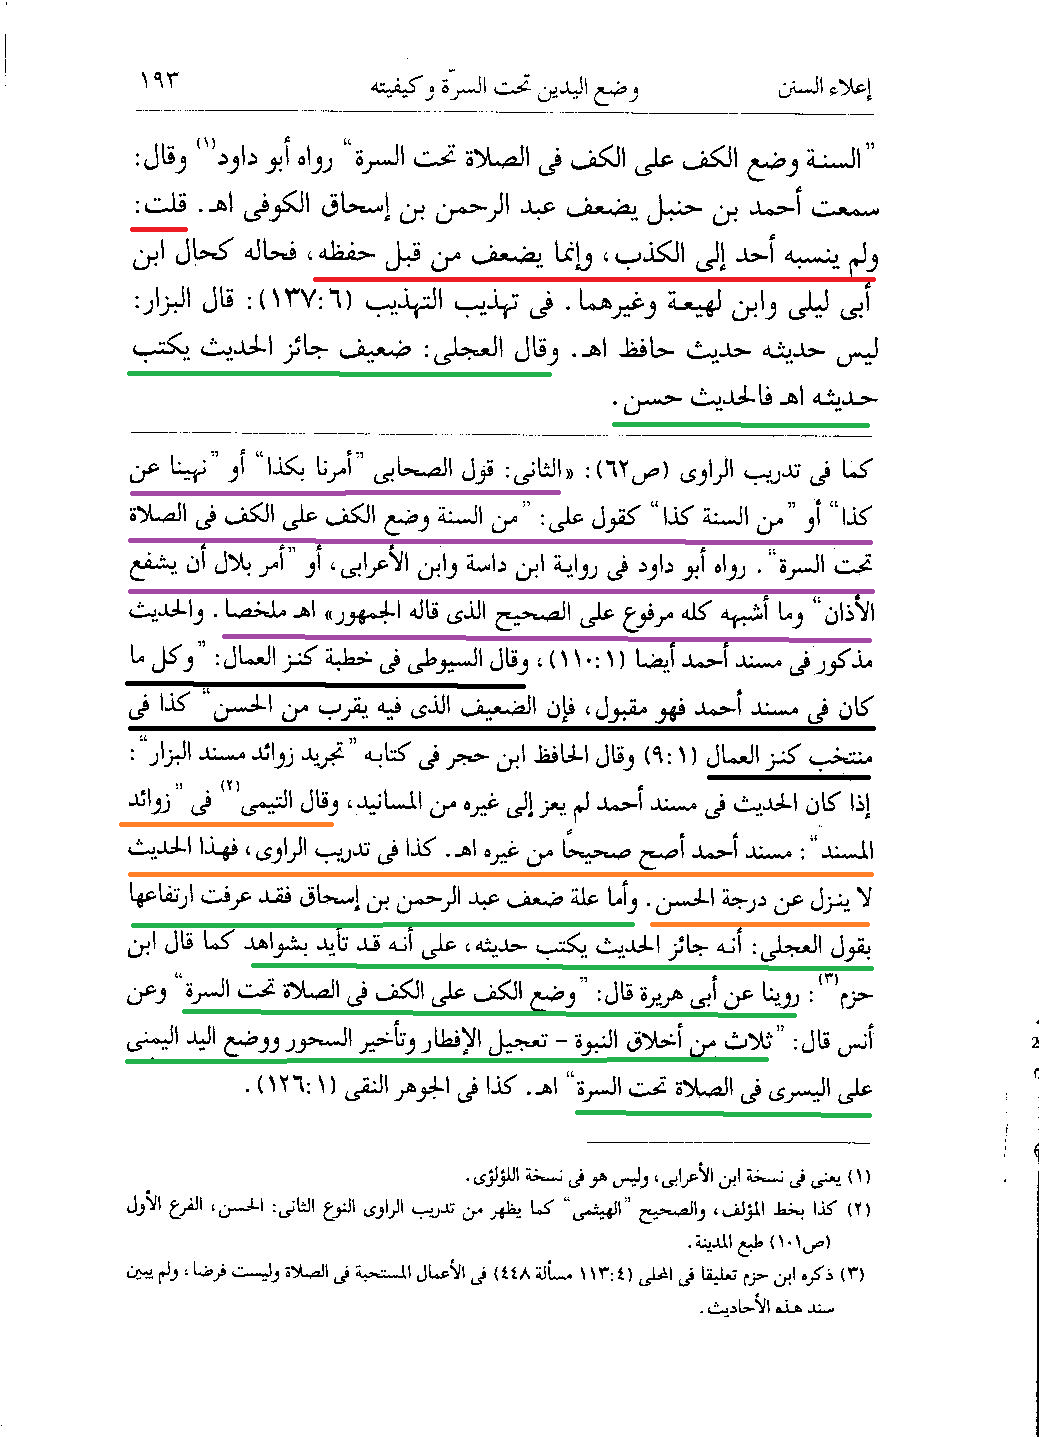 إعلاء السنن وضع اليدين تحت السرّة وكيفيته ١٩٣
"السنة وضع الكف على الكف فى الصلاة تحت السرة" رواه أبو داود(١) وقال:
سمعت أحمد بن حنبل يضعف عبد الرحمن بن إسحاق الكوفى اهـ. قلت:
ولم ينسبه أحد إلى الكذب، وإنما يضعف من قبل حفظه، فحاله كحال ابن
أبى ليلى وابن لهيعة وغيرهما. فى تهذيب التهذيب (٦:١٣٧): قال البزار:
ليس حديثه حديث حافظ اهـ. وقال العجلى: ضعيف جائز الحديث يكتب
حديثه اهـ فالحديث حسن.
كما فى تدريب الراوى (ص٦٢): «الثانى: قول الصحابى "أمرنا بكذا" أو "نهينا عن
كذا" أو "من السنة كذا" كقول على: "من السنة وضع الكف على الكف فى الصلاة
تحت السرة". رواه أبو داود فى رواية ابن داسة وابن الأعرابى، أو "أمر بلال أن يشفع
الأذان" وما أشبهه كله مرفوع على الصحيح الذى قاله الجمهور» اهـ ملخصا. والحديث
مذكور فى مسند أحمد أيضا (١:١١٠)، وقال السيوطى فى خطبة كنز العمال: "وكل ما
كان فى مسند أحمد فهو مقبول، فإن الضعيف الذى فيه يقرب من الحسن" كذا فى
منتخب كنز العمال (١:٩) وقال الحافظ ابن حجر فى كتابه "تجريد زوائد مسند البزار":
إذا كان الحديث فى مسند أحمد لم يعز إلى غيره من المسانيد، وقال التيمى(٢) فى "زوائد
المسند": مسند أحمد أصح صحيحًا من غيره اهـ. كذا فى تدريب الراوى، فهذا الحديث
لا ينزل عن درجة الحسن. وأما علة ضعف عبد الرحمن بن إسحاق فقد عرفت ارتفاعها
بقول العجلى: أنه جائز الحديث يكتب حديثه، على أنه قد تأيد بشواهد كما قال ابن
حزم(٣): روينا عن أبى هريرة قال: "وضع الكف على الكف فى الصلاة تحت السرة" وعن
أنس قال: "ثلاث من أخلاق النبوة - تعجيل الإفطار وتأخير السحور ووضع اليد اليمنى
على اليسرى فى الصلاة تحت السرة" اهـ. كذا فى الجوهر النقى (١:١٢٦).
(١) يعنى فى نسخة ابن الأعرابى، وليس هو فى نسخة اللؤلؤى.
(٢) كذا بخط المؤلف، والصحيح "الهيثمى" كما يظهر من تدريب الراوى النوع الثانى: الحسن، الفرع الأول
(ص١٠١) طبع المدينة.
(٣) ذكره ابن حزم تعليقا فى المحلى (٤:١١٣ مسألة ٤٤٨) فى الأعمال المستحبة فى الصلاة وليست فرضا، ولم يبين
سند هذه الأحاديث.